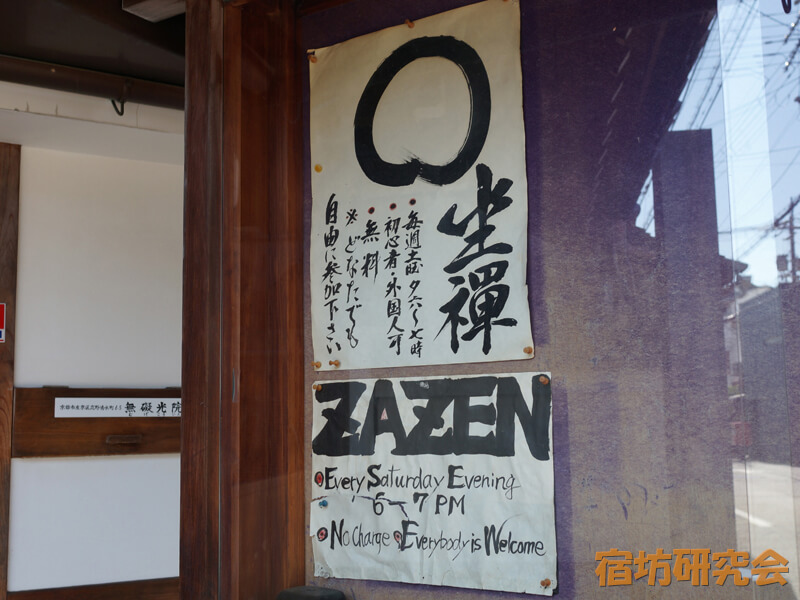 坐禅
毎週土曜夕六〜七時
初心者・外国人可
無料
※どなたでも
自由に参加下さい
ZAZEN
Every Saturday Evening
6-7 PM
No Charge Everybody is Welcome
無礙光院
宿坊研究会